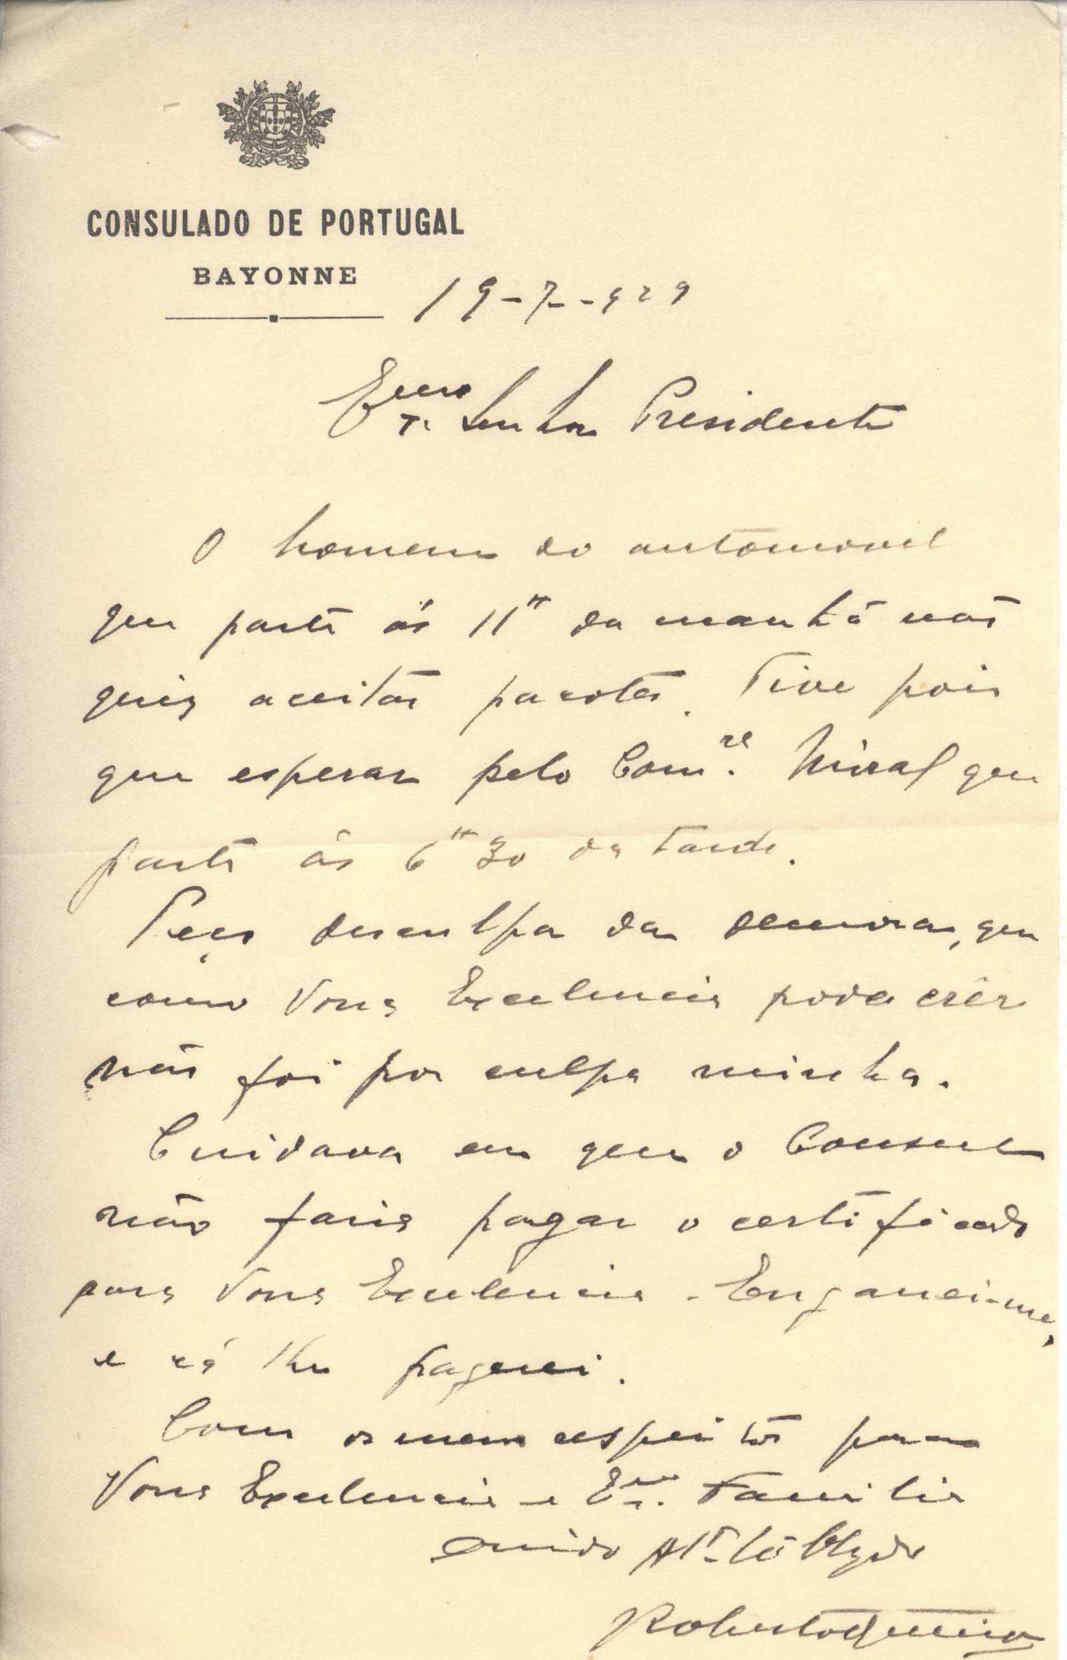 CONSULADO DE PORTUGAL
BAYONNE
19-7-929
Exmo Senhor Presidente
O homem do automovel
que parte ás 11h da manhã não
quiz aceitar pacotes. Tive pois
que esperar pelo Com.re que
parte ás 6h 30 da tarde.
Peço desculpa da demora, que
como Vossa Excelencia póde crêr
não foi por culpa minha.
Cuidava eu que o Consul
não faria pagar o certificado
para Vossa Excelencia. Enganei-me,
e já lhe paguei.
Com os meus respeitos para
Vossa Excelencia e Exma. Familia
Roberto